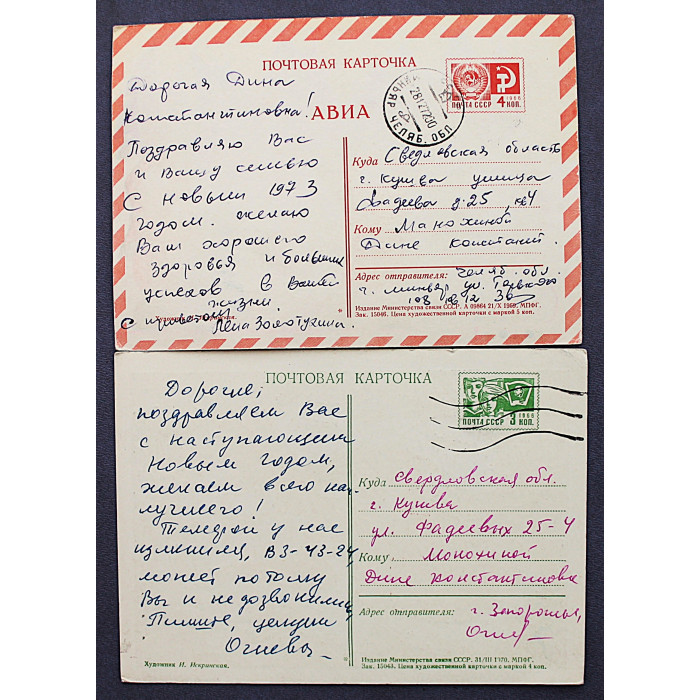 ПОЧТОВАЯ КАРТОЧКА
АВИА
Дорогая Дина
Константиновна!
Поздравляю Вас
и Вашу семью
С Новым 1973
годом. желаю
Вам хорошего
здоровья и больших
успехов в Вашей
жизни
С приветом Лена Золотухина.
Художник
ЧЕЛЯБ. ОБЛ.
ПОЧТА СССР 4 КОП.
1966
Куда Свердловская область
г. Кушва улица
Фадеева д. 25, кв 4
Кому Манохиной
Дине Констант.
Адрес отправителя: Челяб. обл.
г. Миньяр ул. Горького
Издание Министерства связи СССР. А 09864 21/X 1969. МПФГ.
Зак. 15046. Цена художественной карточки с маркой 5 коп.
ПОЧТОВАЯ КАРТОЧКА
Дорогие,
поздравляем Вас
с наступающим
Новым годом,
желаем всего на
лучшего!
Телефон у нас
изменился, В3-43-24,
может потому
Вы и не дозвонились
Пишите, целуем
Огневы
Художник И. Искринская.
1966
ПОЧТА СССР 3 КОП.
Куда Свердловская обл.
г. Кушва
ул. Фадеевых 25-4
Кому Монохиной
Дине Константиновне
Адрес отправителя: г. Запорожье,
Огнев
Издание Министерства связи СССР. 31/III 1970. МПФГ.
Зак. 15043. Цена художественной карточки с маркой 4 коп.